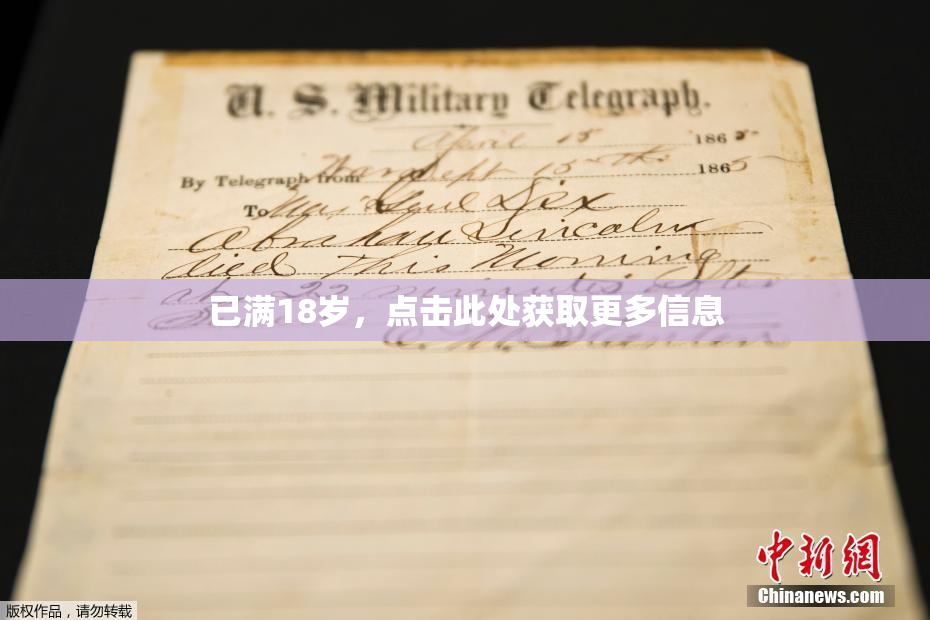 U. S. Military Telegraph.
April 15 1865
By Telegraph from War Dept 15th 1865
To Maj Genl Dix
Abraham Lincoln
died This Morning
at 22 minutes After
已满18岁，点击此处获取更多信息
E. M. Stanton
中新网
Chinanews.com
版权作品，请勿转载